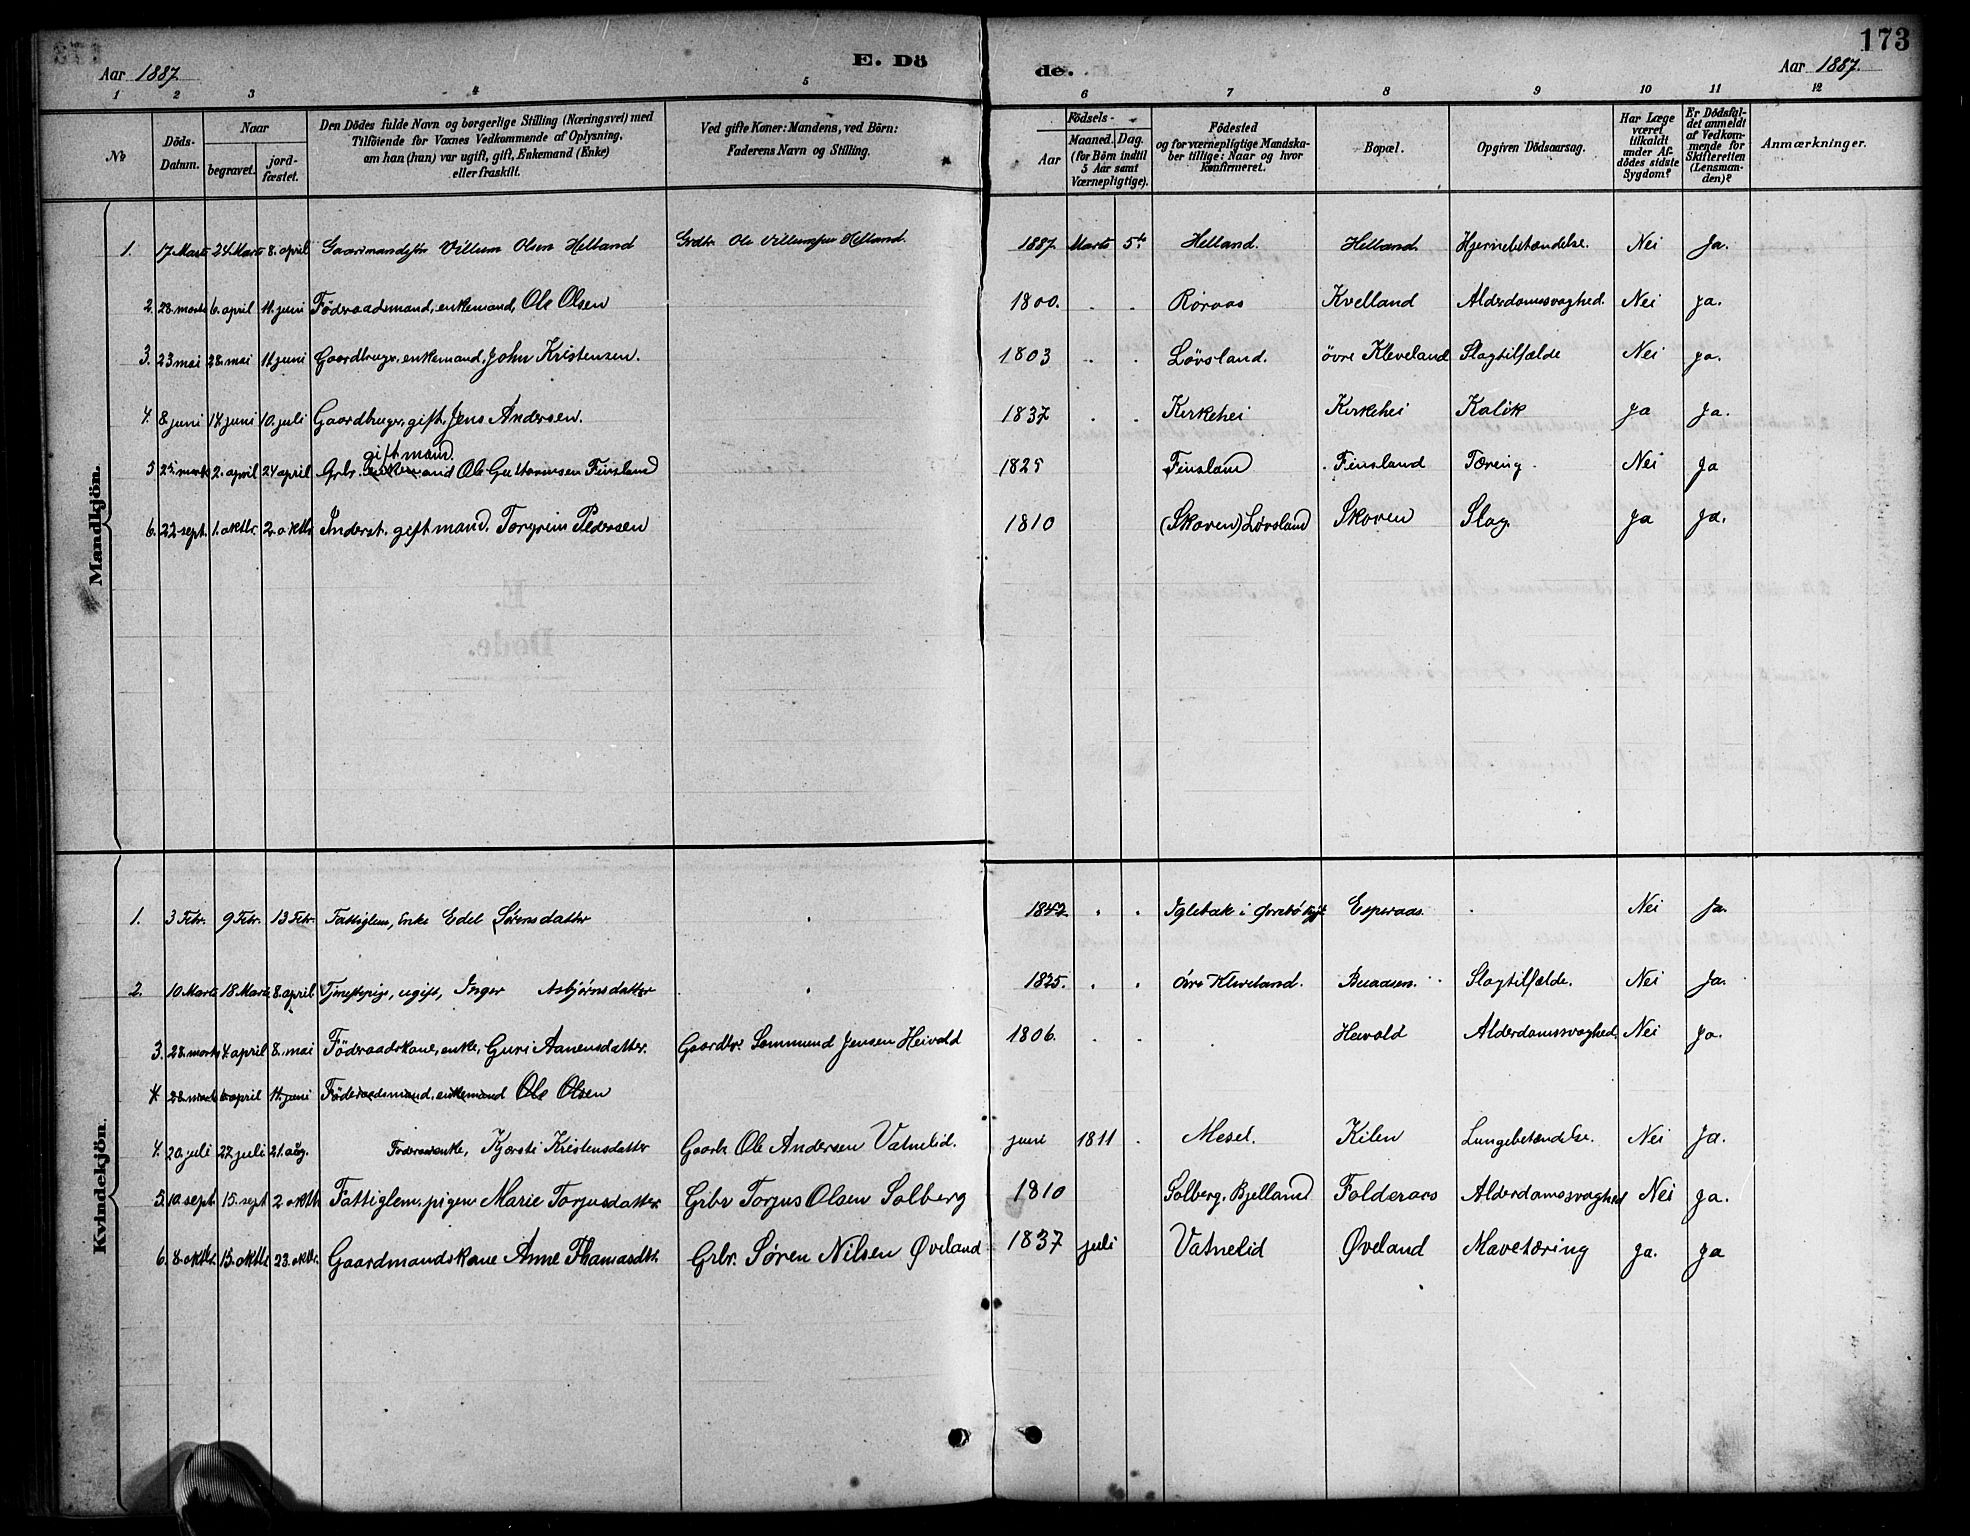 173
Aar 1887. E. Dö de. Aar 1887.
1 2 3 4 5 6 7 8 9 10 11 12
No
Döds-Datum.
Naar
begravet.
jord-fæstet.
Den Dödes fulde Navn og borgerlige Stilling (Næringsvei) med
Tilföiende for Voxnes Vedkommende af Oplysning,
om han (hun) var ugift, gift, Enkemand (Enke)
eller fraskilt.
Ved gifte Koner: Mandens, ved Börn:
Faderens Navn og Stilling.
Födsels-
Aar
Maaned. Dag.
(for Börn indtil
5 Aar samt
Værnepligtige).
Födested
og for værnepligtige Mandska-
ber tillige: Naar og hvor
konfirmeret.
Bopæl.
Opgiven Dödsaarsag.
Har Læge
været
tilkaldt
under Af-
dödes sidste
Sygdom?
Er Dödsfal-
det anmeldt
af Vedkom-
mende for
Skifteretten
(Lensman-
den)?
Anmærkninger.
Mandkjön.
1. 17 Marts 24 Marts 8. april Gaardmandssøn Villum Olsen Helland Grdbr. Ole Villumsen Helland. 1887. Marts 5te Helland. Helland Hjernebetændelse. Nei Ja.
2. 28. marts 6. april 11. juni Föderaadsmand, enkemand, Ole Olsen 1800. . . Röraas Kvelland Alderdomssvaghed. Nei ja.
3. 23 mai 28. mai 11 juni Gaardbruger, enkemand, John Kristensen. 1803 . . Lövsland. övre Kleveland Slagtilfælde Nei ja.
4. 8 juni 14. juni 10. juli Gaardbruger, gift, Jens Andersen. 1837 . . Kirkehei Kirkehei Kolik ja ja.
gift mand.
5 25. marts 2. april 24 april Grbr. enkemand Ole Guttormsen Finsland 1825 Finsland Finsland Tæring. Nei Ja
6. 22 sept. 1. oktbr. 2. oktb Inderst, gift mand. Torgrim Pedersen 1810 (Skoven) Lövsland Skoven Slag. ja ja.
E.
Döde.
Kvindekjön.
1. 3 Febr. 9 Febr. 13 Febr. Fattiglem, Enke Edel Sørensdatter 1842 . . Iglebæk i Øvrebö Esperaas. . Nei Ja.
2. 10 Marts 18 Marts 8. april Tjenestepige, ugift, Inger Asbjørnsdatter 1825. . . Øvre Kleveland. Buaasen. Slagtilfælde. Nei Ja.
3. 28. marts 4. april 8. mai Föderaadskone, enke, Guri Aanensdatter. Gaardbr. Sommund Jensen Heivold 1806. . . . Heivold Alderdomssvaghed. Nei Ja.
4 28 marts 6 april 11. juni Föderaadsmand, enkemand Ole Olsen
4. 20 juli 27. juli 21. aug. Föderaadsenke, Kjersti Kristensdatter Gaardb. Ole Andersen Vatnelid. juni 1811 . Mesel. Kilen Lungebetændelse. Nei Ja.
5. 10 sept. 15. sept 2 oktb. Fattiglem, pigen Marie Torjusdatter Grbr Torjus Olsen Solberg 1810 Solberg, Bjelland Folderaas Alderdomssvaghed Nei ja.
6. 8. oktb. 15. oktb. 23. oktbr. Gaardmandskone Anne Thomasdtr. Grbr. Søren Nilsen Øveland 1837 juli Vatnelid Øveland Mavetæring ja. ja